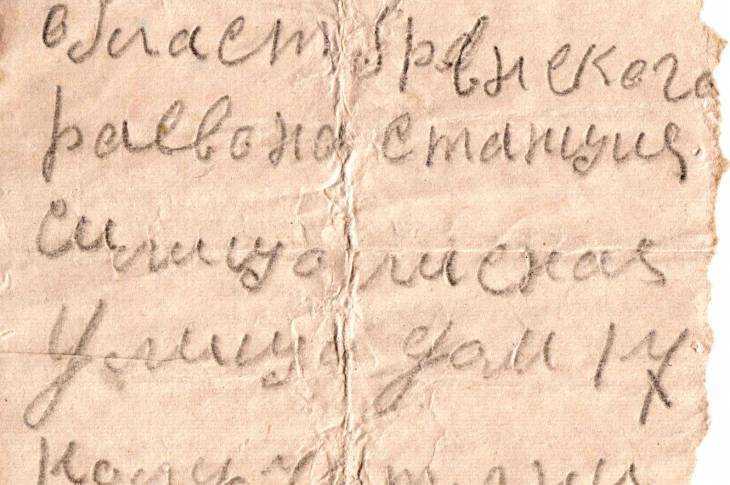 област брянского
раевона станция
синица лисная
улица дом 14